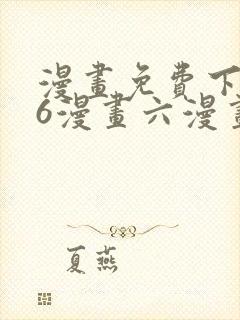 漫畫免費下
6漫畫六漫畫
夏燕